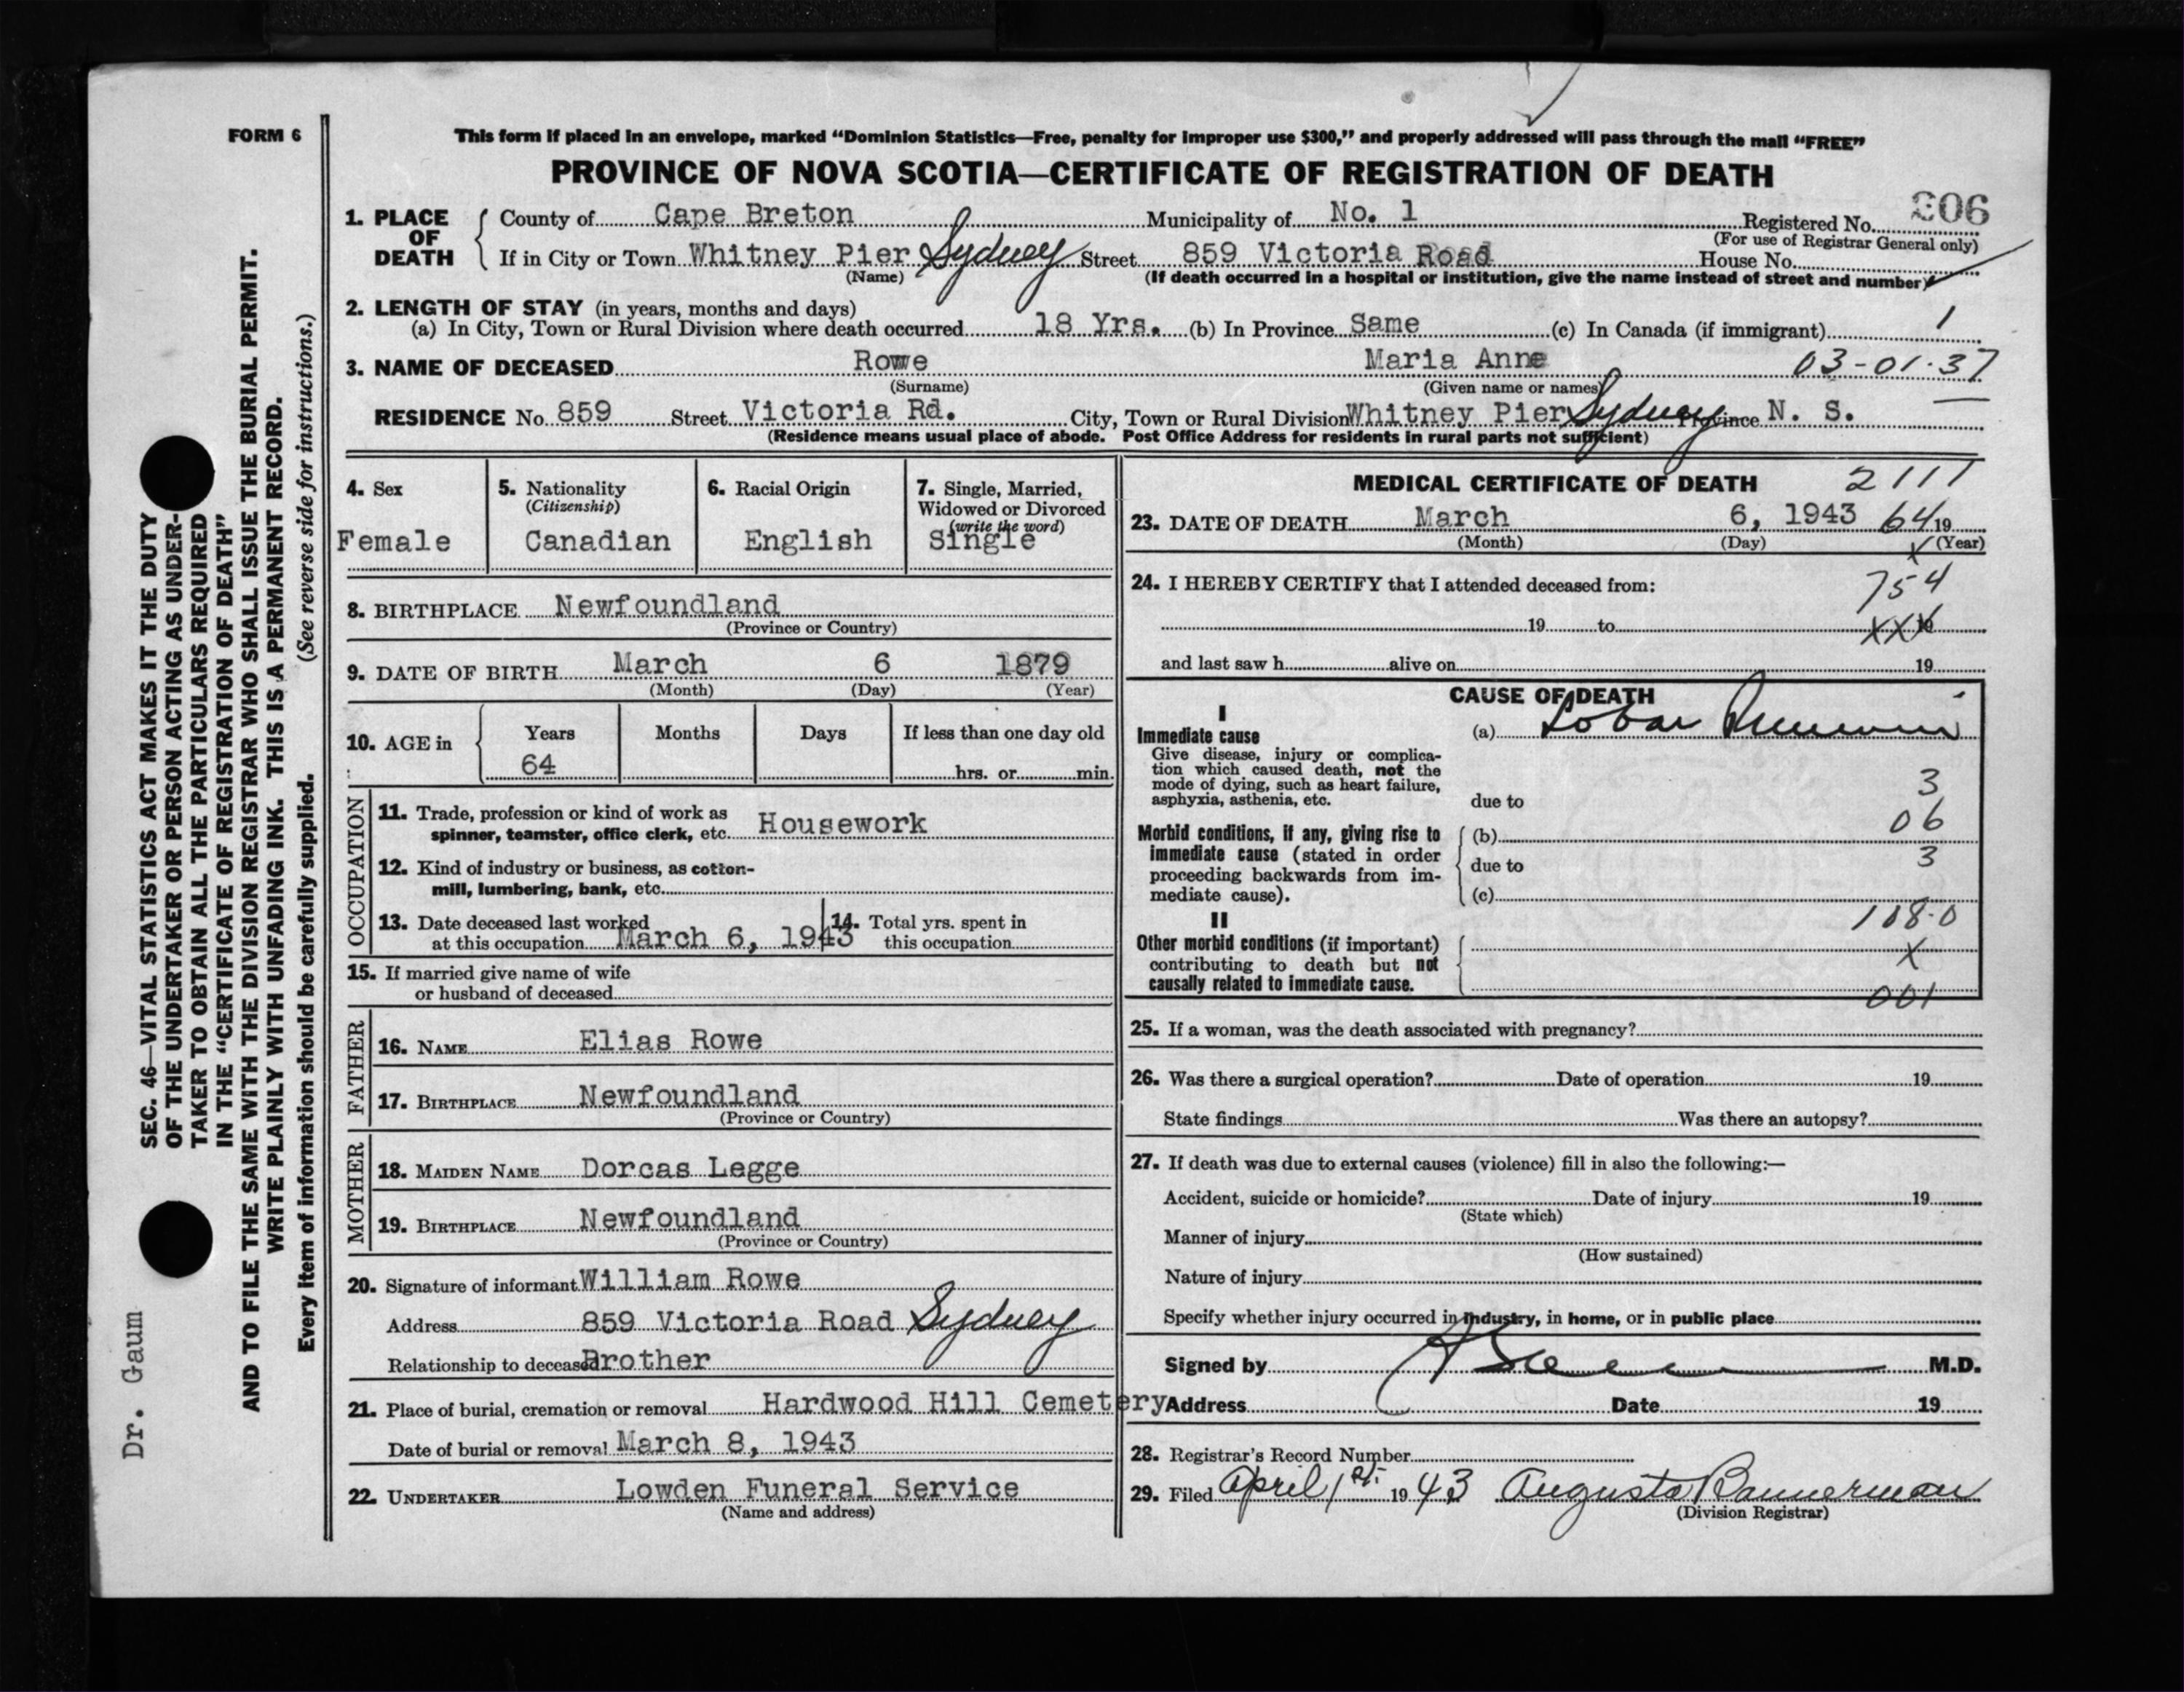 FORM 6
This form if placed in an envelope, marked “Dominion Statistics—Free, penalty for improper use $300,” and properly addressed will pass through the mail “FREE”
PROVINCE OF NOVA SCOTIA—CERTIFICATE OF REGISTRATION OF DEATH
1. PLACE OF DEATH
County of Cape Breton Municipality of No. 1 Registered No. 306
(For use of Registrar General only)
If in City or Town Whitney Pier Sydney Street 859 Victoria Road House No.
(Name) (If death occurred in a hospital or institution, give the name instead of street and number)
2. LENGTH OF STAY (in years, months and days)
(a) In City, Town or Rural Division where death occurred 18 Yrs. (b) In Province Same (c) In Canada (if immigrant) 1
3. NAME OF DECEASED Rowe Maria Anne 03-01-37
(Surname) (Given name or names)
RESIDENCE No. 859 Street Victoria Rd. City, Town or Rural Division Whitney Pier Sydney Province N. S.
(Residence means usual place of abode. Post Office Address for residents in rural parts not sufficient)
4. Sex
Female
5. Nationality
(Citizenship)
Canadian
6. Racial Origin
English
7. Single, Married,
Widowed or Divorced
(write the word)
Single
8. BIRTHPLACE Newfoundland
(Province or Country)
9. DATE OF BIRTH March 6 1879
(Month) (Day) (Year)
10. AGE in Years Months Days If less than one day old
64 hrs. or min.
OCCUPATION
11. Trade, profession or kind of work as
spinner, teamster, office clerk, etc. Housework
12. Kind of industry or business, as cotton-
mill, lumbering, bank, etc.
13. Date deceased last worked
at this occupation March 6, 1943
14. Total yrs. spent in
this occupation
15. If married give name of wife
or husband of deceased
FATHER
16. NAME Elias Rowe
17. BIRTHPLACE Newfoundland
(Province or Country)
MOTHER
18. MAIDEN NAME Dorcas Legge
19. BIRTHPLACE Newfoundland
(Province or Country)
20. Signature of informant William Rowe
Address 859 Victoria Road Sydney
Relationship to deceased Brother
21. Place of burial, cremation or removal Hardwood Hill Cemetery
Date of burial or removal March 8, 1943
22. UNDERTAKER Lowden Funeral Service
(Name and address)
MEDICAL CERTIFICATE OF DEATH 2111
23. DATE OF DEATH March 6, 1943 64 19
(Month) (Day) (Year)
X
24. I HEREBY CERTIFY that I attended deceased from: 754
19 to XXX 19
and last saw h alive on 19
CAUSE OF DEATH
I
Immediate cause (a) Lobar
Give disease, injury or complica-
tion which caused death, not the
mode of dying, such as heart failure,
asphyxia, asthenia, etc. due to 3
06
Morbid conditions, if any, giving rise to (b)
immediate cause (stated in order due to 3
proceeding backwards from im-
mediate cause). (c)
108-0
II
Other morbid conditions (if important) X
contributing to death but not
causally related to immediate cause. 001
25. If a woman, was the death associated with pregnancy?
26. Was there a surgical operation? Date of operation 19
State findings Was there an autopsy?
27. If death was due to external causes (violence) fill in also the following:—
Accident, suicide or homicide? Date of injury 19
(State which)
Manner of injury
(How sustained)
Nature of injury
Specify whether injury occurred in industry, in home, or in public place
Signed by M.D.
Address Date 19
28. Registrar's Record Number
29. Filed April 1st 1943 Augusta Bannerman
(Division Registrar)
SEC. 46—VITAL STATISTICS ACT MAKES IT THE DUTY
OF THE UNDERTAKER OR PERSON ACTING AS UNDER-
TAKER TO OBTAIN ALL THE PARTICULARS REQUIRED
IN THE “CERTIFICATE OF REGISTRATION OF DEATH”
AND TO FILE THE SAME WITH THE DIVISION REGISTRAR WHO SHALL ISSUE THE BURIAL PERMIT.
WRITE PLAINLY WITH UNFADING INK. THIS IS A PERMANENT RECORD.
Every item of information should be carefully supplied. (See reverse side for instructions.)
Dr. Gaum